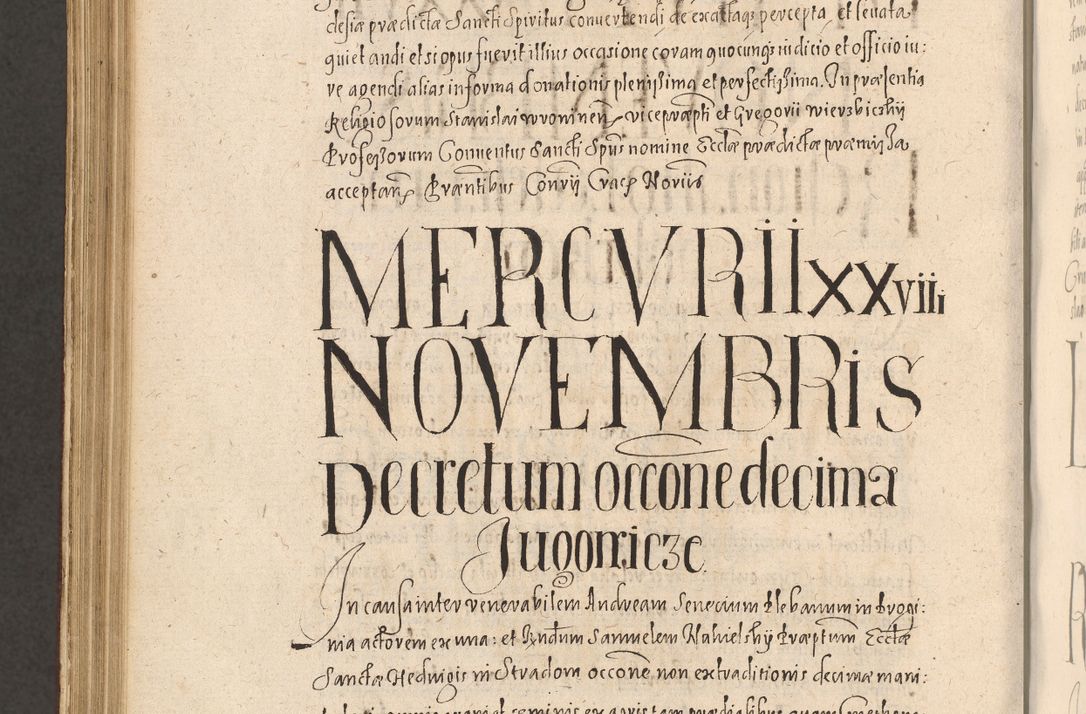 clesiæ prædictæ Sancti Spiritus convertendi de exactaqz percepta, et levata
quietandi et si opus fuerit illius occasione coram quocunqz iudicio et officio iu:
re agendi alias in forma donationis plenissima et perfectissima. In præsentia
Religiosorum Stanislai vice præpti et Gregorii Wierzbiczkÿ
Professorum Conventus Sancti Spūs nomine Ecctæ prædictæ præmissa
acceptan. Præntibus Convÿ Crac Noriis
MERCVRII XXviii
NOVEMBRiS
Decretum occone decimæ
Jugonicze
In causa inter venerabilem Andream Senecium Plebanum in Brogi:
nia actorem ex una: et Rndum Samuelem Præptum Ecctæ
Sanctæ Hedvigis in Stradom occone non extraditionis decimæ mani: